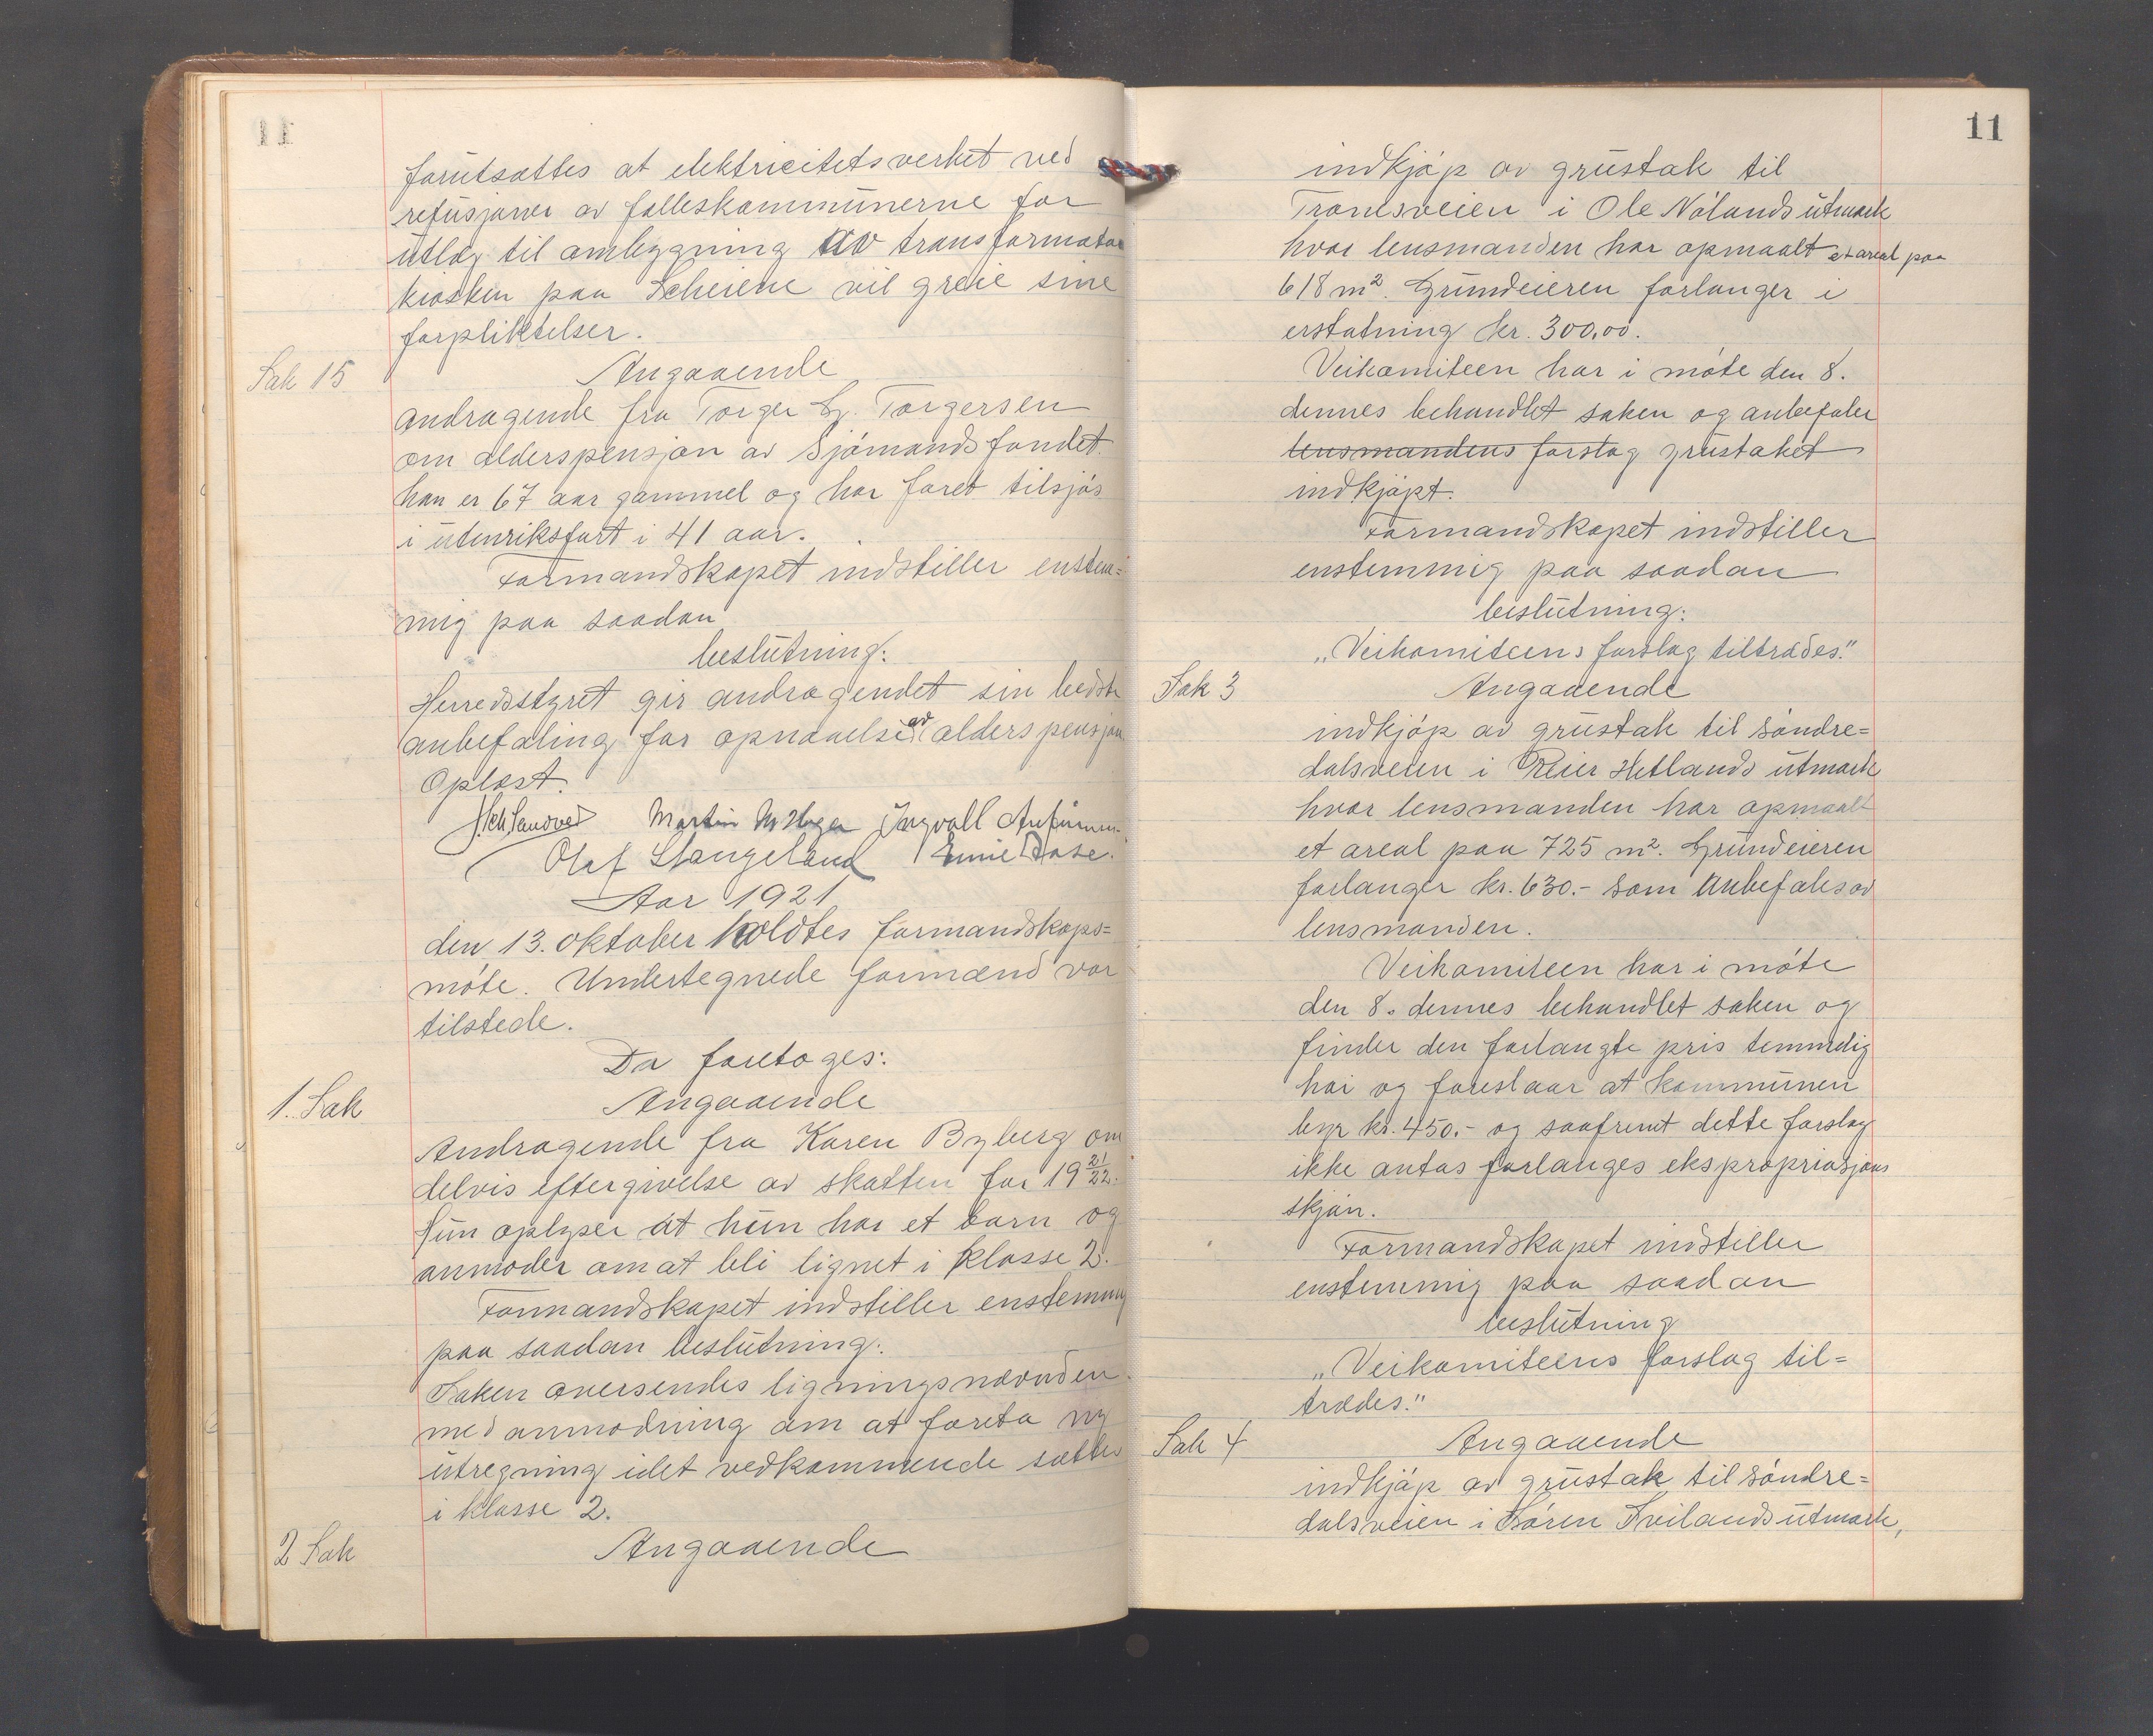 forutsættes at elektricitetsverket ved
refusjoner av fælleskommunerne for
utlæg til ombygning av transformator
kiosken paa Scheiene vil greie sine
forpliktelser.
Sak 15
Angaaende
andragende fra Torger G. Torgersen
om alderspensjon av Sjømandsfondet.
han er 67 aar gammel og har faret tilsjøs
i utenriksfart i 41 aar.
Formandskapet indstiller enstem=
mig paa saadan
beslutning:
Herredsstyret gir andragendet sin bedste
anbefaling for opnaaelse av alderspensjon
Oplæst.
Sandved Martin Ingvall
Olaf Stangeland Aase.
Aar 1921
den 13. oktober holdtes formandskaps=
møte. Undertegnede formænd var
tilstede.
Da foretoges:
1. Sak
Angaaende
Andragende fra Karen Byberg om
delvis eftergivelse av skatten for 19 21/22.
Hun oplyser at hun har et barn og
anmoder om at bli lignet i klasse 2.
Formandskapet indstiller enstemmig
paa saadan beslutning:
Saken oversendes ligningsnævnden
med anmodning om at foreta ny
utregning idet vedkommende sættes
i klasse 2.
2 Sak
Angaaende
11
indkjøp av grustak til
Tronesveien i Ole Nølands utmark
hvor lensmanden har opmaalt et areal paa
618 m². Grundeieren forlanger i
erstatning kr. 300,00.
Veikomiteen har i møte den 8.
dennes behandlet saken og anbefaler
lensmandens forslag grustaket
indkjøpt.
Formandskapet indstiller
enstemmig paa saadan
beslutning:
„Veikomiteens forslag tiltrædes."
Sak 3
Angaaende
indkjøp av grustak til Søndre=
dalsveien i Reier Hetlands utmark
hvor lensmanden har opmaalt
et areal paa 725 m². Grundeieren
forlanger kr. 630.- som anbefales av
lensmanden.
Veikomiteen har i møte
den 8. dennes behandlet saken og
finder den forlangte pris temmelig
høi og foreslaar at kommunen
byr kr. 450.- og saafremt dette forslag
ikke antas forlanges ekspropriasjons
skjøn.
Formandskapet indstiller
enstemmig paa saadan
beslutning
„Veikomiteens forslag til=
trædes."
Sak 4
Angaaende
indkjøp av grustak til Søndre=
dalsveien i Søren Svilands utmark,